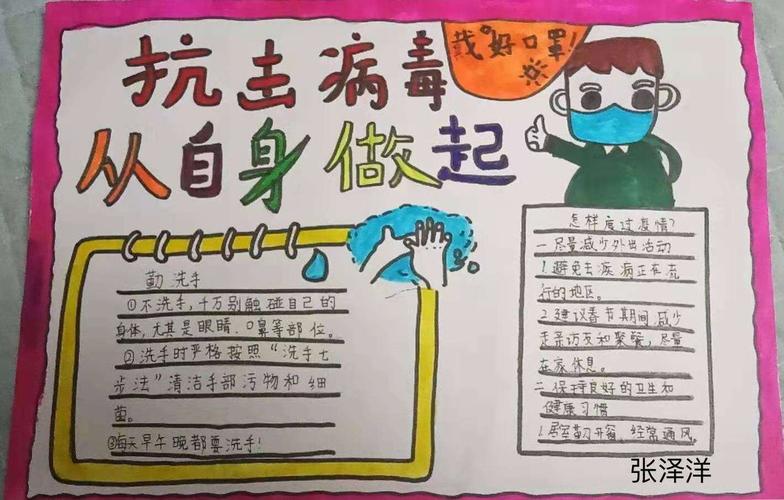 抗击病毒
戴好口罩!
从自身做起
勤洗手
①不洗手,千万别触碰自己的
身体,尤其是眼睛、口鼻等部位。
②洗手时严格按照“洗手七
步法”清洁手部污物和细
菌。
③每天早午晚都要洗手!
怎样度过疫情?
一尽量减少外出活动
1.避免去疾病正在流
行的地区。
2.建议春节期间减少
走亲访友和聚餐,尽量
在家休息。
二保持良好的卫生和
健康习惯
1.居室勤开窗,经常通风。
张泽洋